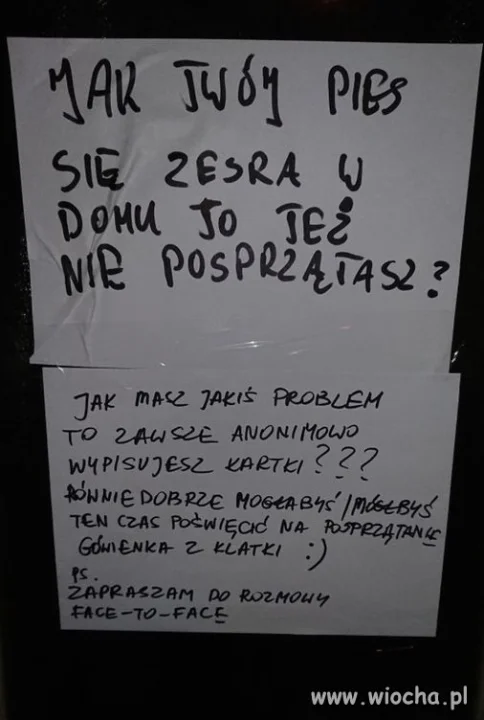 JAK TWÓJ PIES
SIĘ ZESRA W
DOMU TO TEŻ
NIE POSPRZĄTASZ?
JAK MASZ JAKIŚ PROBLEM
TO ZAWSZE ANONIMOWO
WYPISUJESZ KARTKI???
RÓWNIE DOBRZE MOGŁABYŚ/MÓGŁBYŚ
TEN CZAS POŚWIĘCIĆ NA POSPRZĄTANIE
GÓWIENKA Z KLATKI :)
PS.
ZAPRASZAM DO ROZMOWY
FACE-TO-FACE
www.wiocha.pl